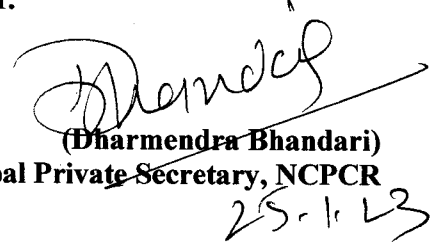 Bhandari
(Dharmendra Bhandari)
pal Private Secretary, NCPCR
25.1.23